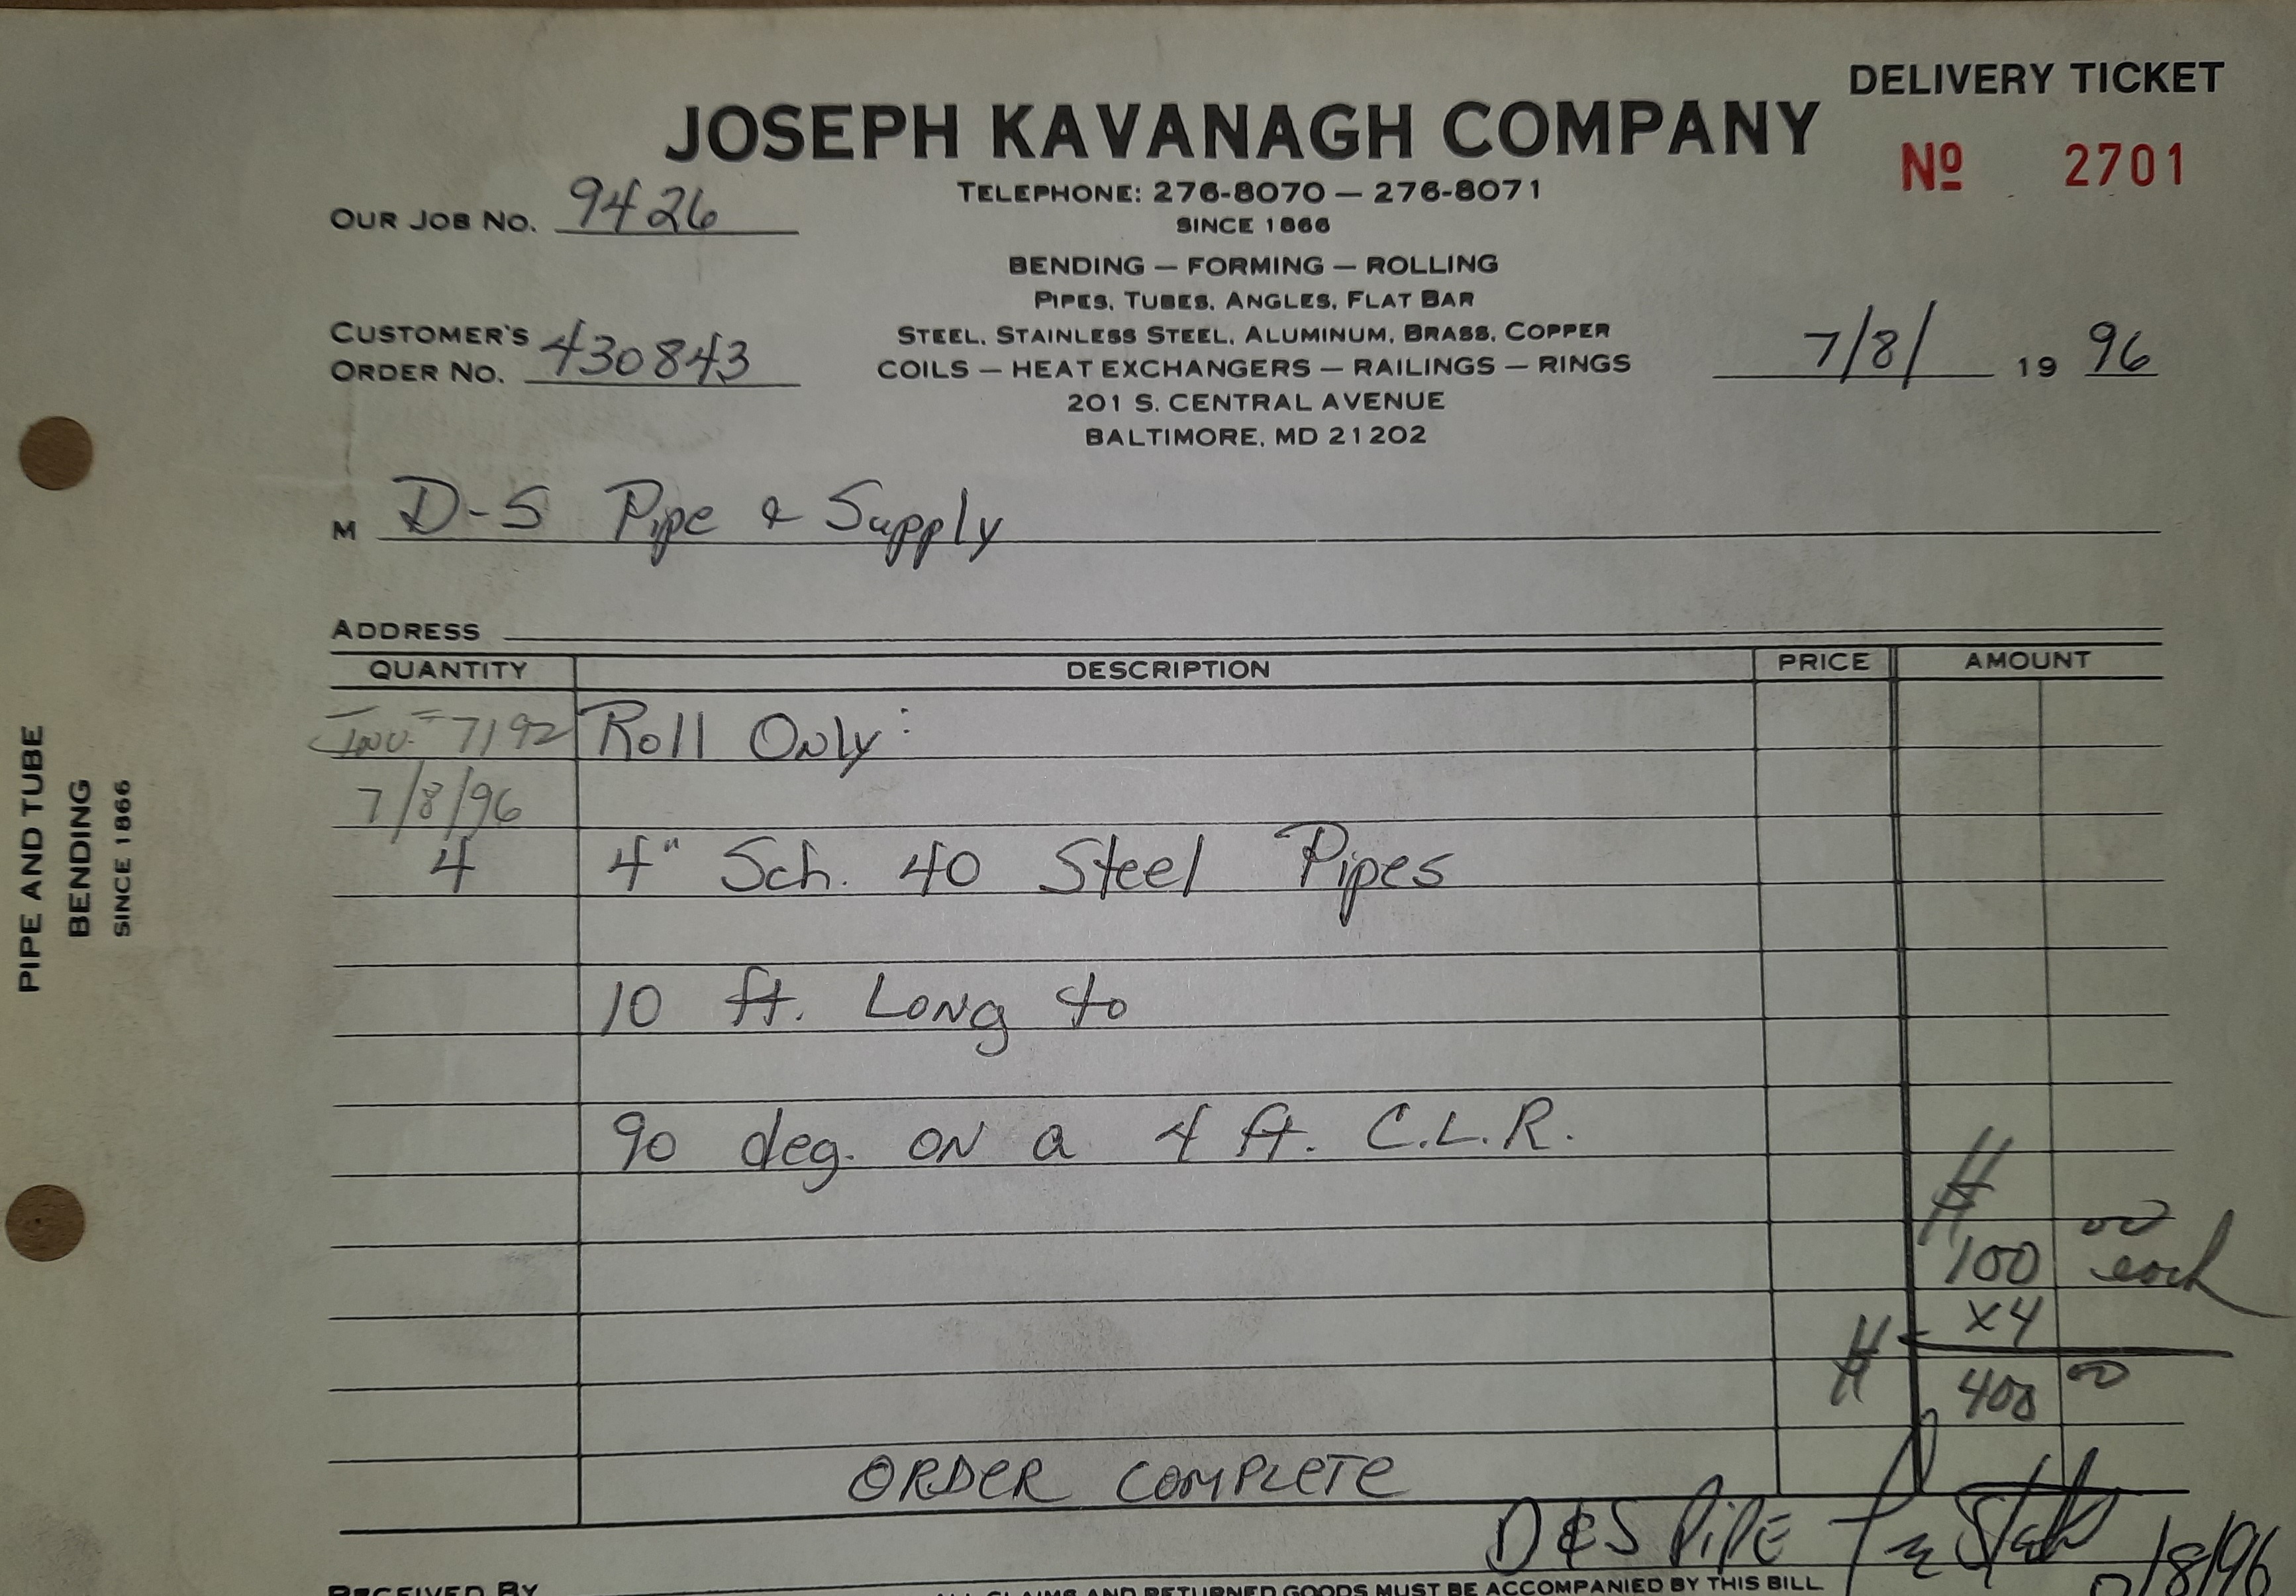 DELIVERY TICKET
JOSEPH KAVANAGH COMPANY
Nº 2701
OUR JOB NO. 9426
TELEPHONE: 276-8070 — 276-8071
SINCE 1866
BENDING — FORMING — ROLLING
PIPES, TUBES, ANGLES, FLAT BAR
CUSTOMER'S ORDER NO. 430843
STEEL, STAINLESS STEEL, ALUMINUM, BRASS, COPPER
COILS — HEAT EXCHANGERS — RAILINGS — RINGS
7/8/ 19 96
201 S. CENTRAL AVENUE
BALTIMORE, MD 21202
M D-S Pipe & Supply
ADDRESS
QUANTITY DESCRIPTION PRICE AMOUNT
Inv.# 7192 Roll Only:
7/8/96
4 4" Sch. 40 Steel Pipes
10 ft. Long to
90 deg. on a 4 ft. C.L.R.
$100 00 each
x4
$400 00
ORDER COMPLETE
D&S PIPE
7/8/96
RECEIVED BY
ALL CLAIMS AND RETURNED GOODS MUST BE ACCOMPANIED BY THIS BILL
PIPE AND TUBE
BENDING
SINCE 1866